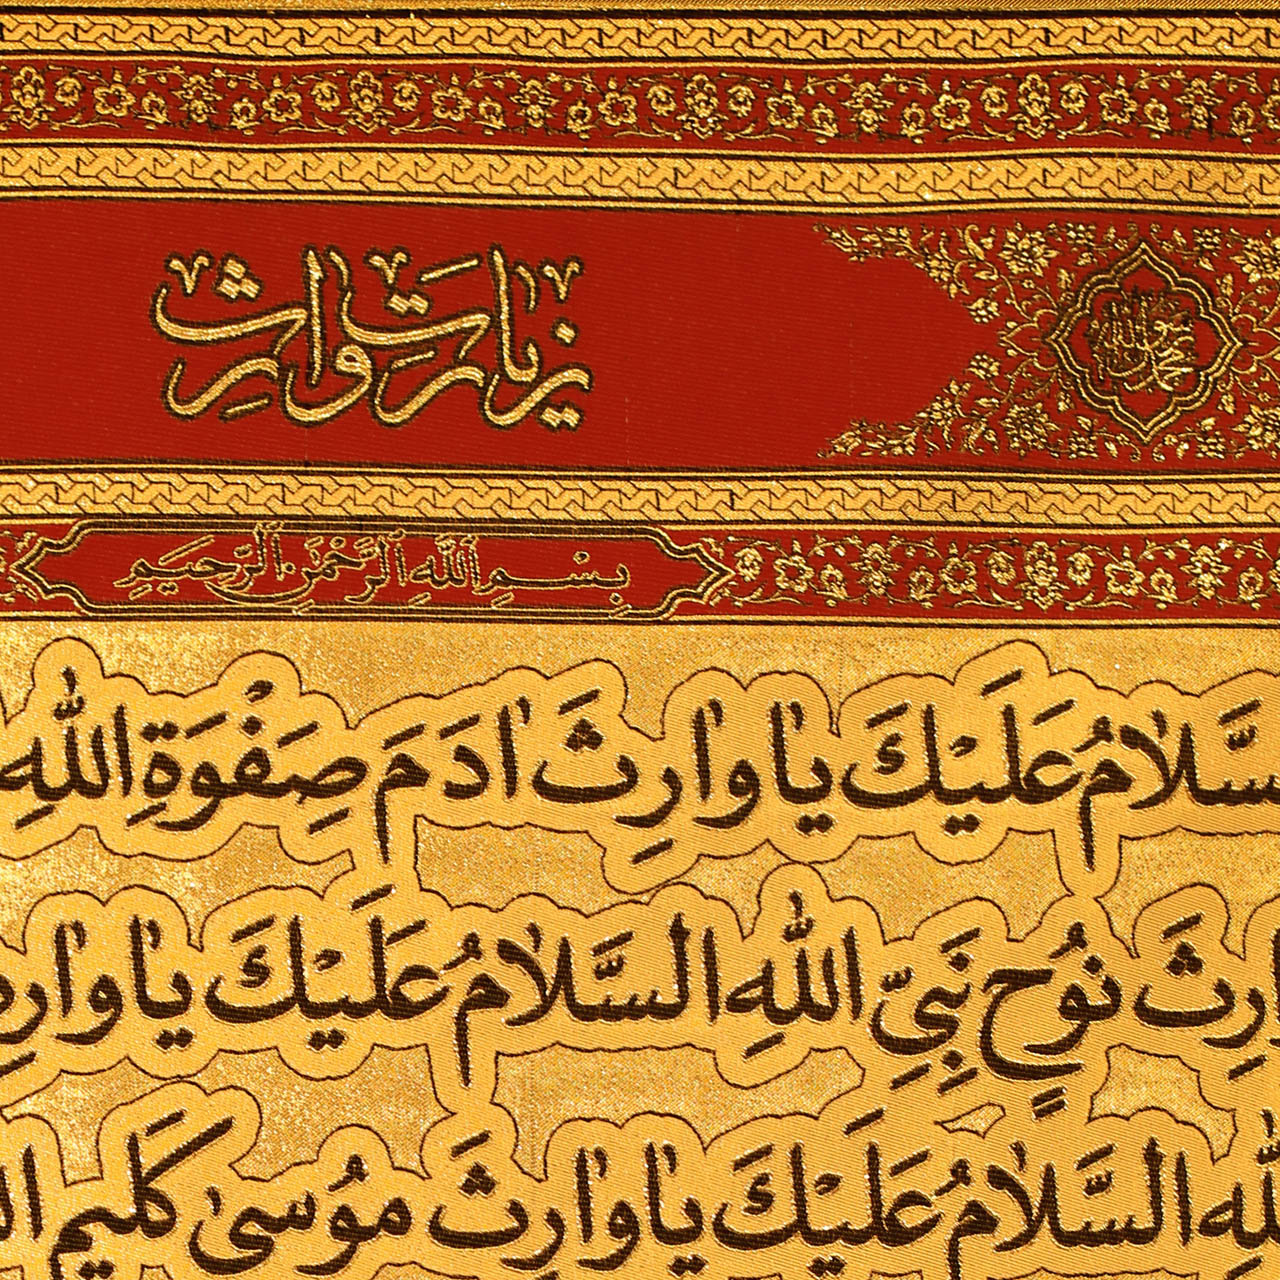 زیارت وارث
بِسْمِ ٱللَّهِ ٱلرَّحْمَٰنِ ٱلرَّحِيمِ
سَّلامُ عَلَيْكَ يا وارِثَ ادَمَ صَِفْوَةِ اللّٰهِ
ارِثَ نُوُحٍ نَبِىِّ اللّٰهِ السَّلامُ عَلَيْكَ يا وارِ
للّٰهِ السَّلامُ عَلَيْكَ يا وارِثَ مُوُسىٰ كَليمِ